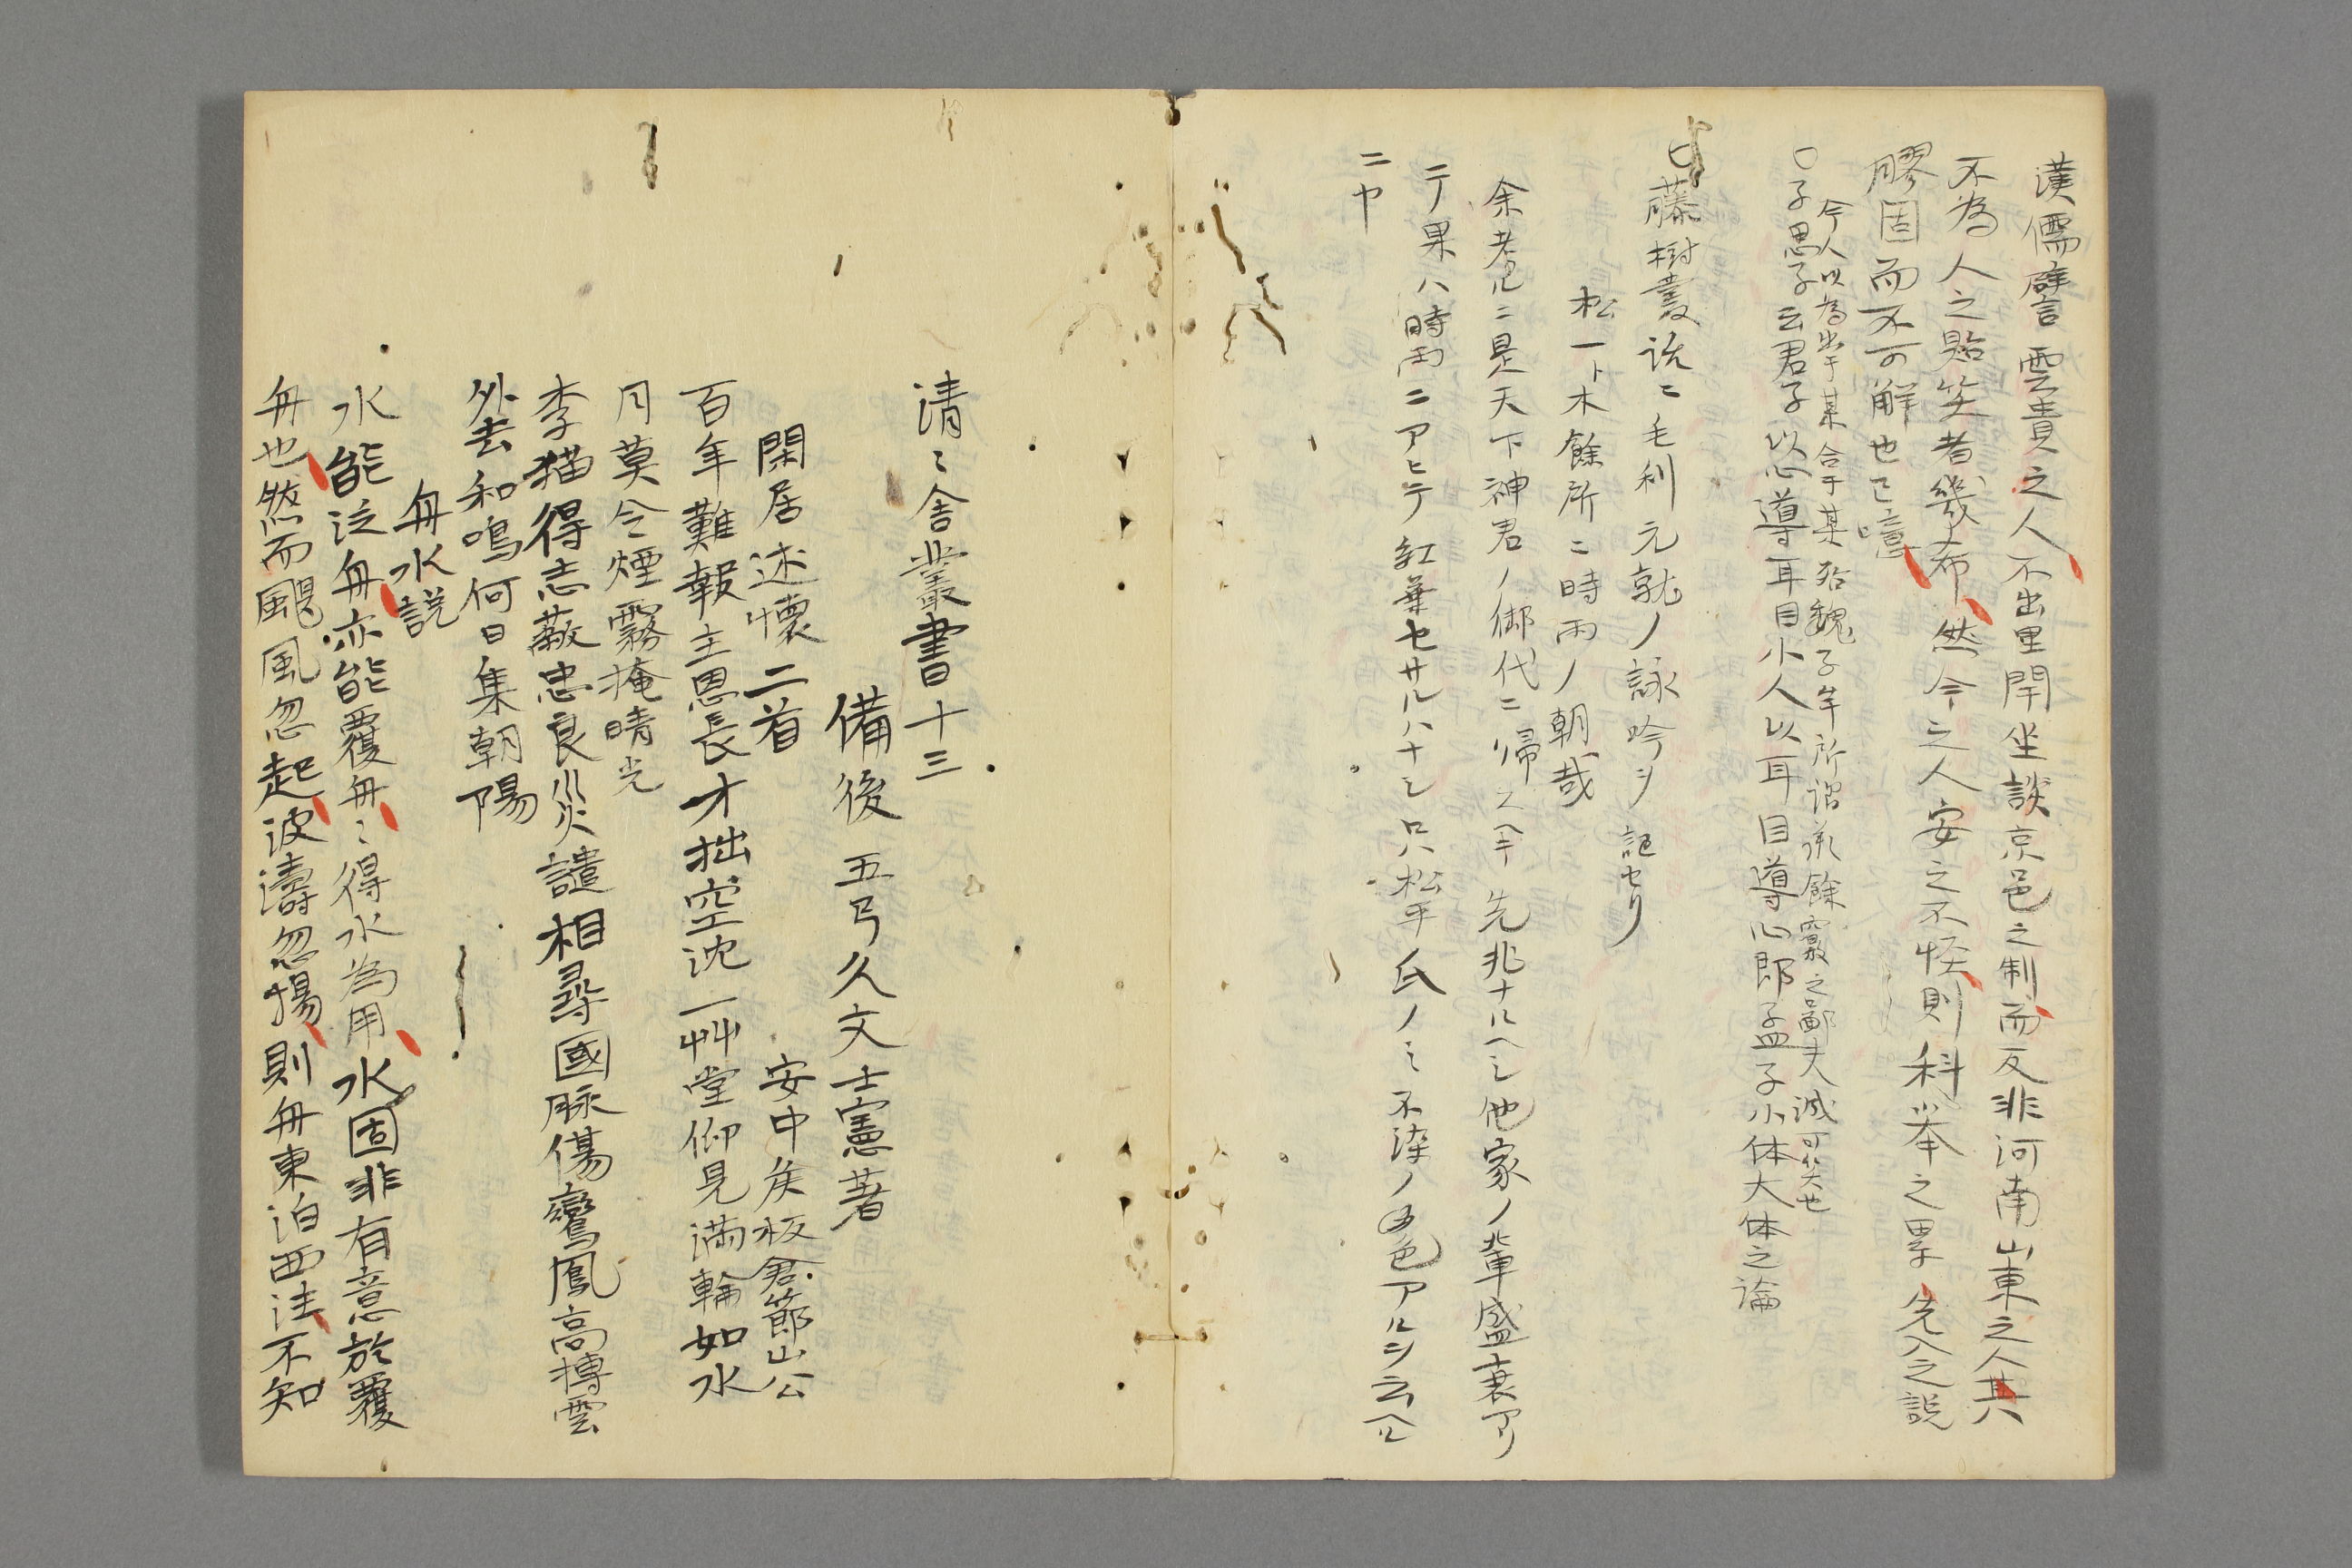 漢儒譬云責之人不出里閈坐談京邑之制而反非河南山東之人其
不為人之貽笑者幾希然今之人安之不怪則科举之累先入之説
膠固而不可解也已噫
今人以為出于某合于某殆魏子牟所謂承餘竅之鄙夫誠可笑也
○子思子云君子以心導耳目小人以耳目導心即孟子小体大体之論
○藤樹叢説ニ毛利元就ノ詠吟ヲ記セリ
松一ト木餘所ニ時雨ノ朝哉
余考ルニ是天下神君ノ御代ニ帰スヘキ先兆ナルヘシ他家ノ輩盛衰アリ
テ果ハ時雨ニアヒテ紅葉セサルハナシ只松平氏ノミ不染ノ色アルヲ云ヘル
ニヤ
清〻舎叢書十三
備後 五弓久文士憲著
閑居述懐二首 安中矦板倉節山公
百年難報主恩長才拙空沈一艸堂仰見満輪如水
月莫令煙霧掩晴光
李猫得志蔽忠良災譴相尋國脉傷鸞鳳高摶雲
外去和鳴何日集朝陽
舟水説
水能泛舟亦能覆舟〻得水為用水固非有意於覆
舟也然而颶風忽起波濤忽揚則舟東泊西注不知